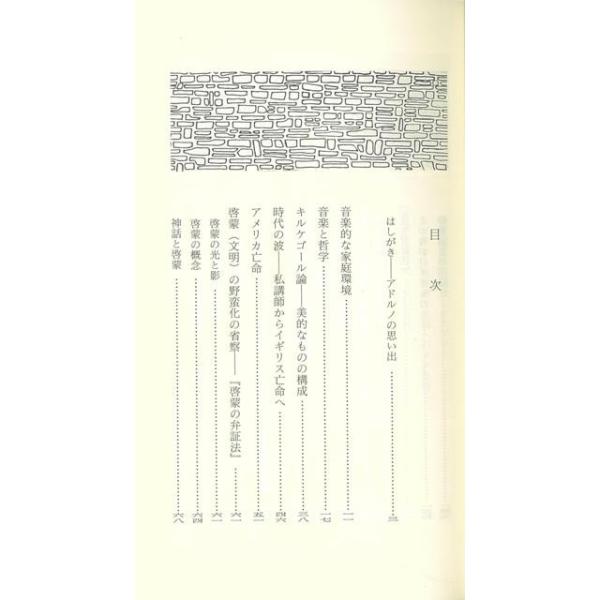 目次
はしがき——アドルノの思い出……三
音楽的な家庭環境……一一
音楽と哲学……一七
キルケゴール論——美的なものの構成……三八
時代の波——私講師からイギリス亡命へ……四六
アメリカ亡命……五一
啓蒙（文明）の野蛮化の省察——『啓蒙の弁証法』……六一
啓蒙の光と影……六一
啓蒙の概念……六四
神話と啓蒙……六八